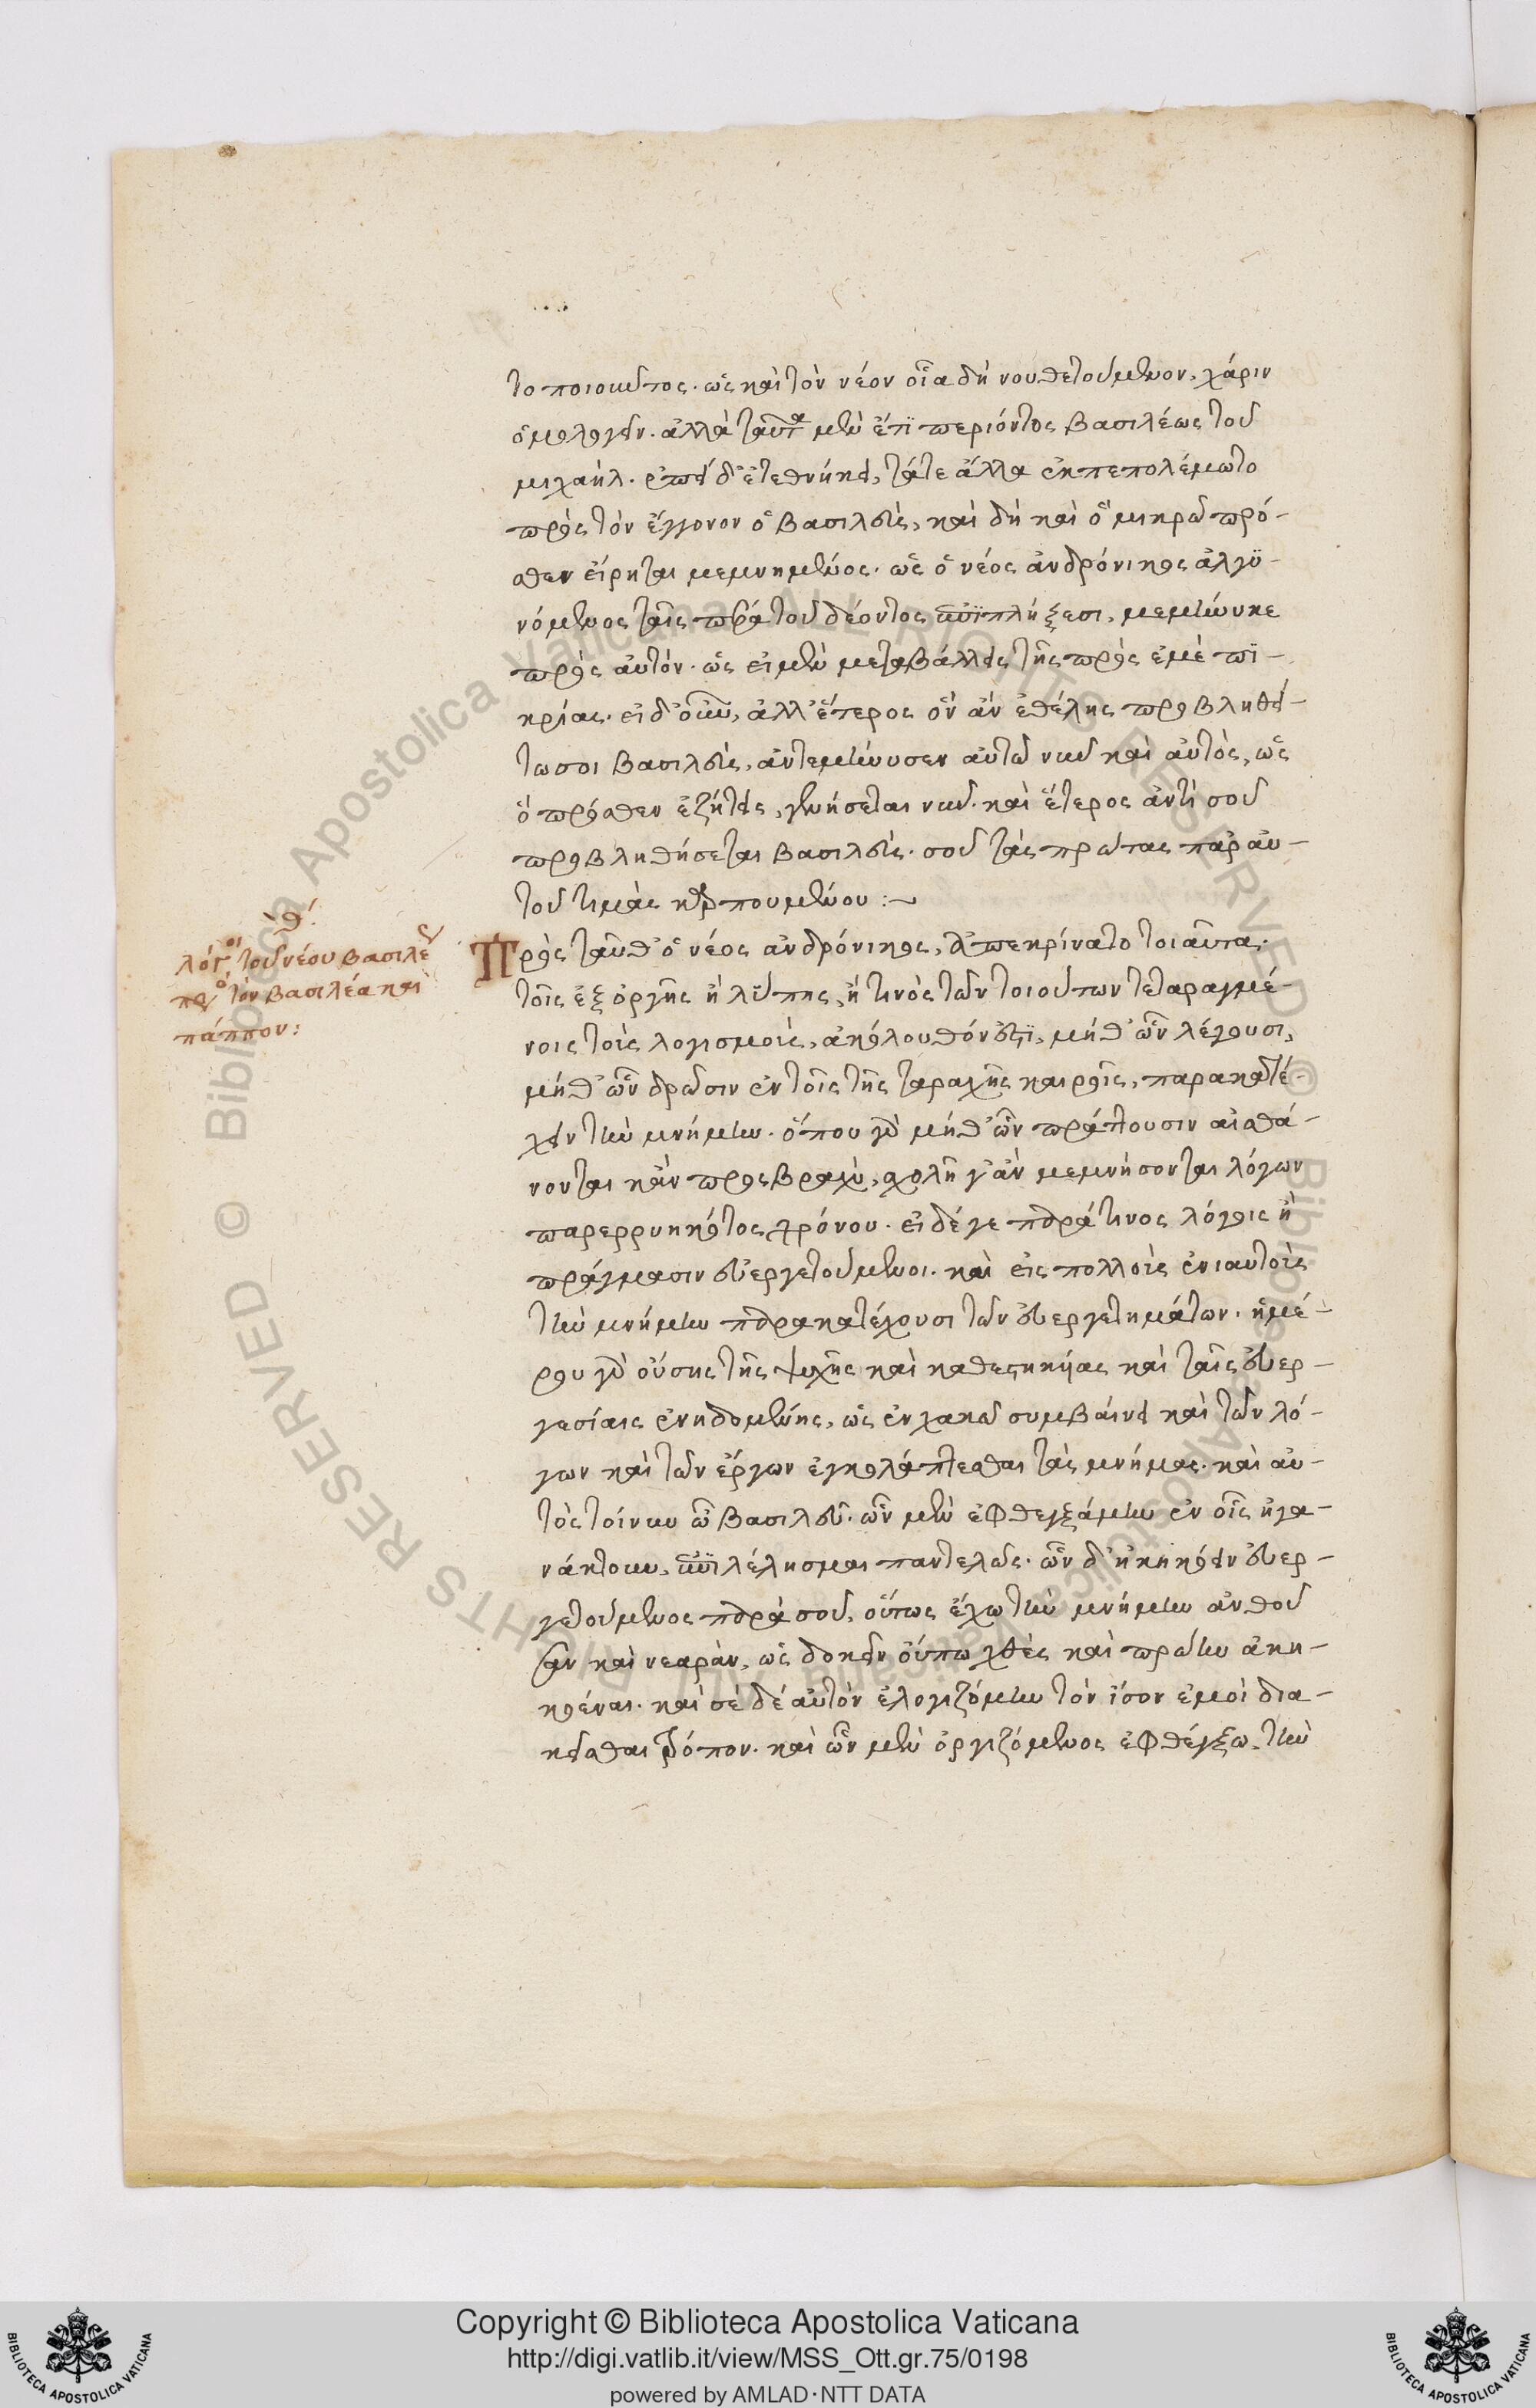 το ποιοῦντος. ὡς καὶ τὸν νέον οἷα δὴ νουθετούμενον, χάριν
ὁμολογεῖν. ἀλλὰ ταῦτα μὲν ἔτϊ περιόντος βασιλέως τοῦ
μιχαήλ. ἐπεὶ δ' ἐτεθνήκει, τάτε ἄλλα ἐκπεπολέμωτο
πρὸς τὸν ἔγγονον ὁ βασιλεὺς, καὶ δὴ καὶ ὃ μικρῶ πρό-
σθεν εἴρηται μεμνημένος. ὡς ὁ νέος ἀνδρόνικος ἀλγϋ-
νόμενος ταῖς παρὰ τοῦ δέοντος ἐπϊπλήξεσι, μεμήνυκε
πρὸς αὐτόν. ὡς εἰ μὲν μεταβάλλεις τῆς πρὸς ἐμὲ πϊ-
κρίας. εἰ δ' οὖν, ἀλλ' ἕτερος ὃν ἂν ἐθέλης προβληθεί-
τω σοι βασιλεὺς, ἀντεμήνυσεν αὐτῶ νῦν καὶ αὐτὸς, ὡς
ὃ πρόσθεν ἐζήτεις, γενήσεται νῦν. καὶ ἕτερος ἀντὶ σοῦ
προβληθήσεται βασιλεὺς. σοῦ τὰς πρώτας παρ' αὐ-
τοῦ τιμὰς καρπουμένου :~
θ'.
λόγοι τοῦ νέου βασιλέως
πρὸς τὸν βασιλέα καὶ
πάππον:
Πρὸς ταῦθ' ὁ νέος ἀνδρόνικος, ἀπεκρίνατο τοιαῦτα.
τοῖς ἐξ ὀργῆς ἢ λύπης, ἤ τινὸς τῶν τοιούτων τεταραγμέ-
νοις τοὺς λογισμοὺς, ἀκόλουθόν ἐστϊ, μήθ' ὧν λέγουσι,
μήθ' ὧν δρῶσιν ἐν τοῖς τῆς ταραχῆς καιροῖς, παρακατέ-
χειν τὴν μνήμην. ὅπου γὰρ μήθ' ὧν πράττουσιν αἰσθά-
νονται κἂν προς βραχὺ, σχολῆ γ' ἂν μεμνήσονται λόγων
παρερρυηκότος χρόνου. εἰ δέ γε παρά τινος λόγοις ἢ
πράγμασιν εὐεργετούμενοι. καὶ εἰς πολλοὺς ἐνιαυτοὺς
τὴν μνήμην παρακατέχουσι τῶν εὐεργετημάτων. ἡμέ-
ρου γὰρ οὔσης τῆς ψυχῆς καὶ καθεστηκυίας καὶ ταῖς εὐερ-
γεσίαις ἐνηδομένης, ὡς ἐν χαλκῶ συμβαίνει καὶ τῶν λό-
γων καὶ τῶν ἔργων ἐγκολάπτεσθαι τὰς μνήμας. καὶ αὐ-
τὸς τοίνυν ὦ βασιλεῦ. ὧν μὲν ἐφθεγξάμην ἐν οἷς ἠγα-
νάκτουν, ἐπϊλέλησμαι παντελῶς. ὧν δ' ἠκηκόειν εὐερ-
γετούμενος παρὰ σοῦ, οὕτως ἔχω τὴν μνήμην ἀνθοῦ
σαν καὶ νεαρὰν, ὡς δοκεῖν οὔπω χθὲς καὶ πρώην ἀκη-
κοέναι. καὶ σὲ δὲ αὐτὸν ἐλογιζόμην τὸν ἴσον ἐμοὶ δια-
κεῖσθαι τρόπον. καὶ ὧν μὲν ὀργιζόμενος ἐφθέγξω, τὴν
Copyright © Biblioteca Apostolica Vaticana
http://digi.vatlib.it/view/MSS_Ott.gr.75/0198
powered by AMLAD·NTT DATA